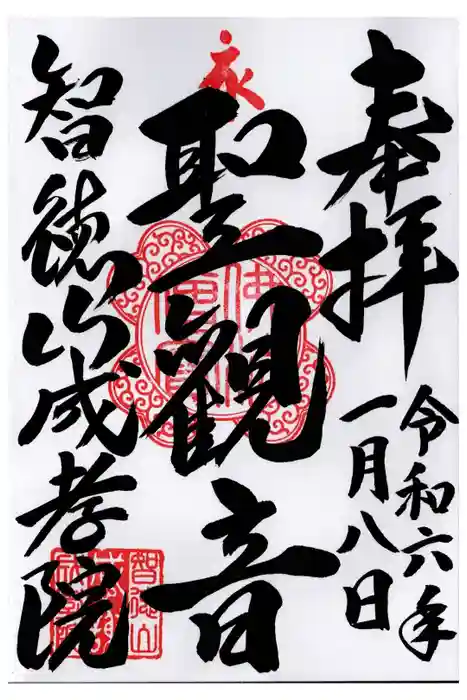 奉拝
令和六年
一月八日
聖観音
智徳山成孝院
智徳山